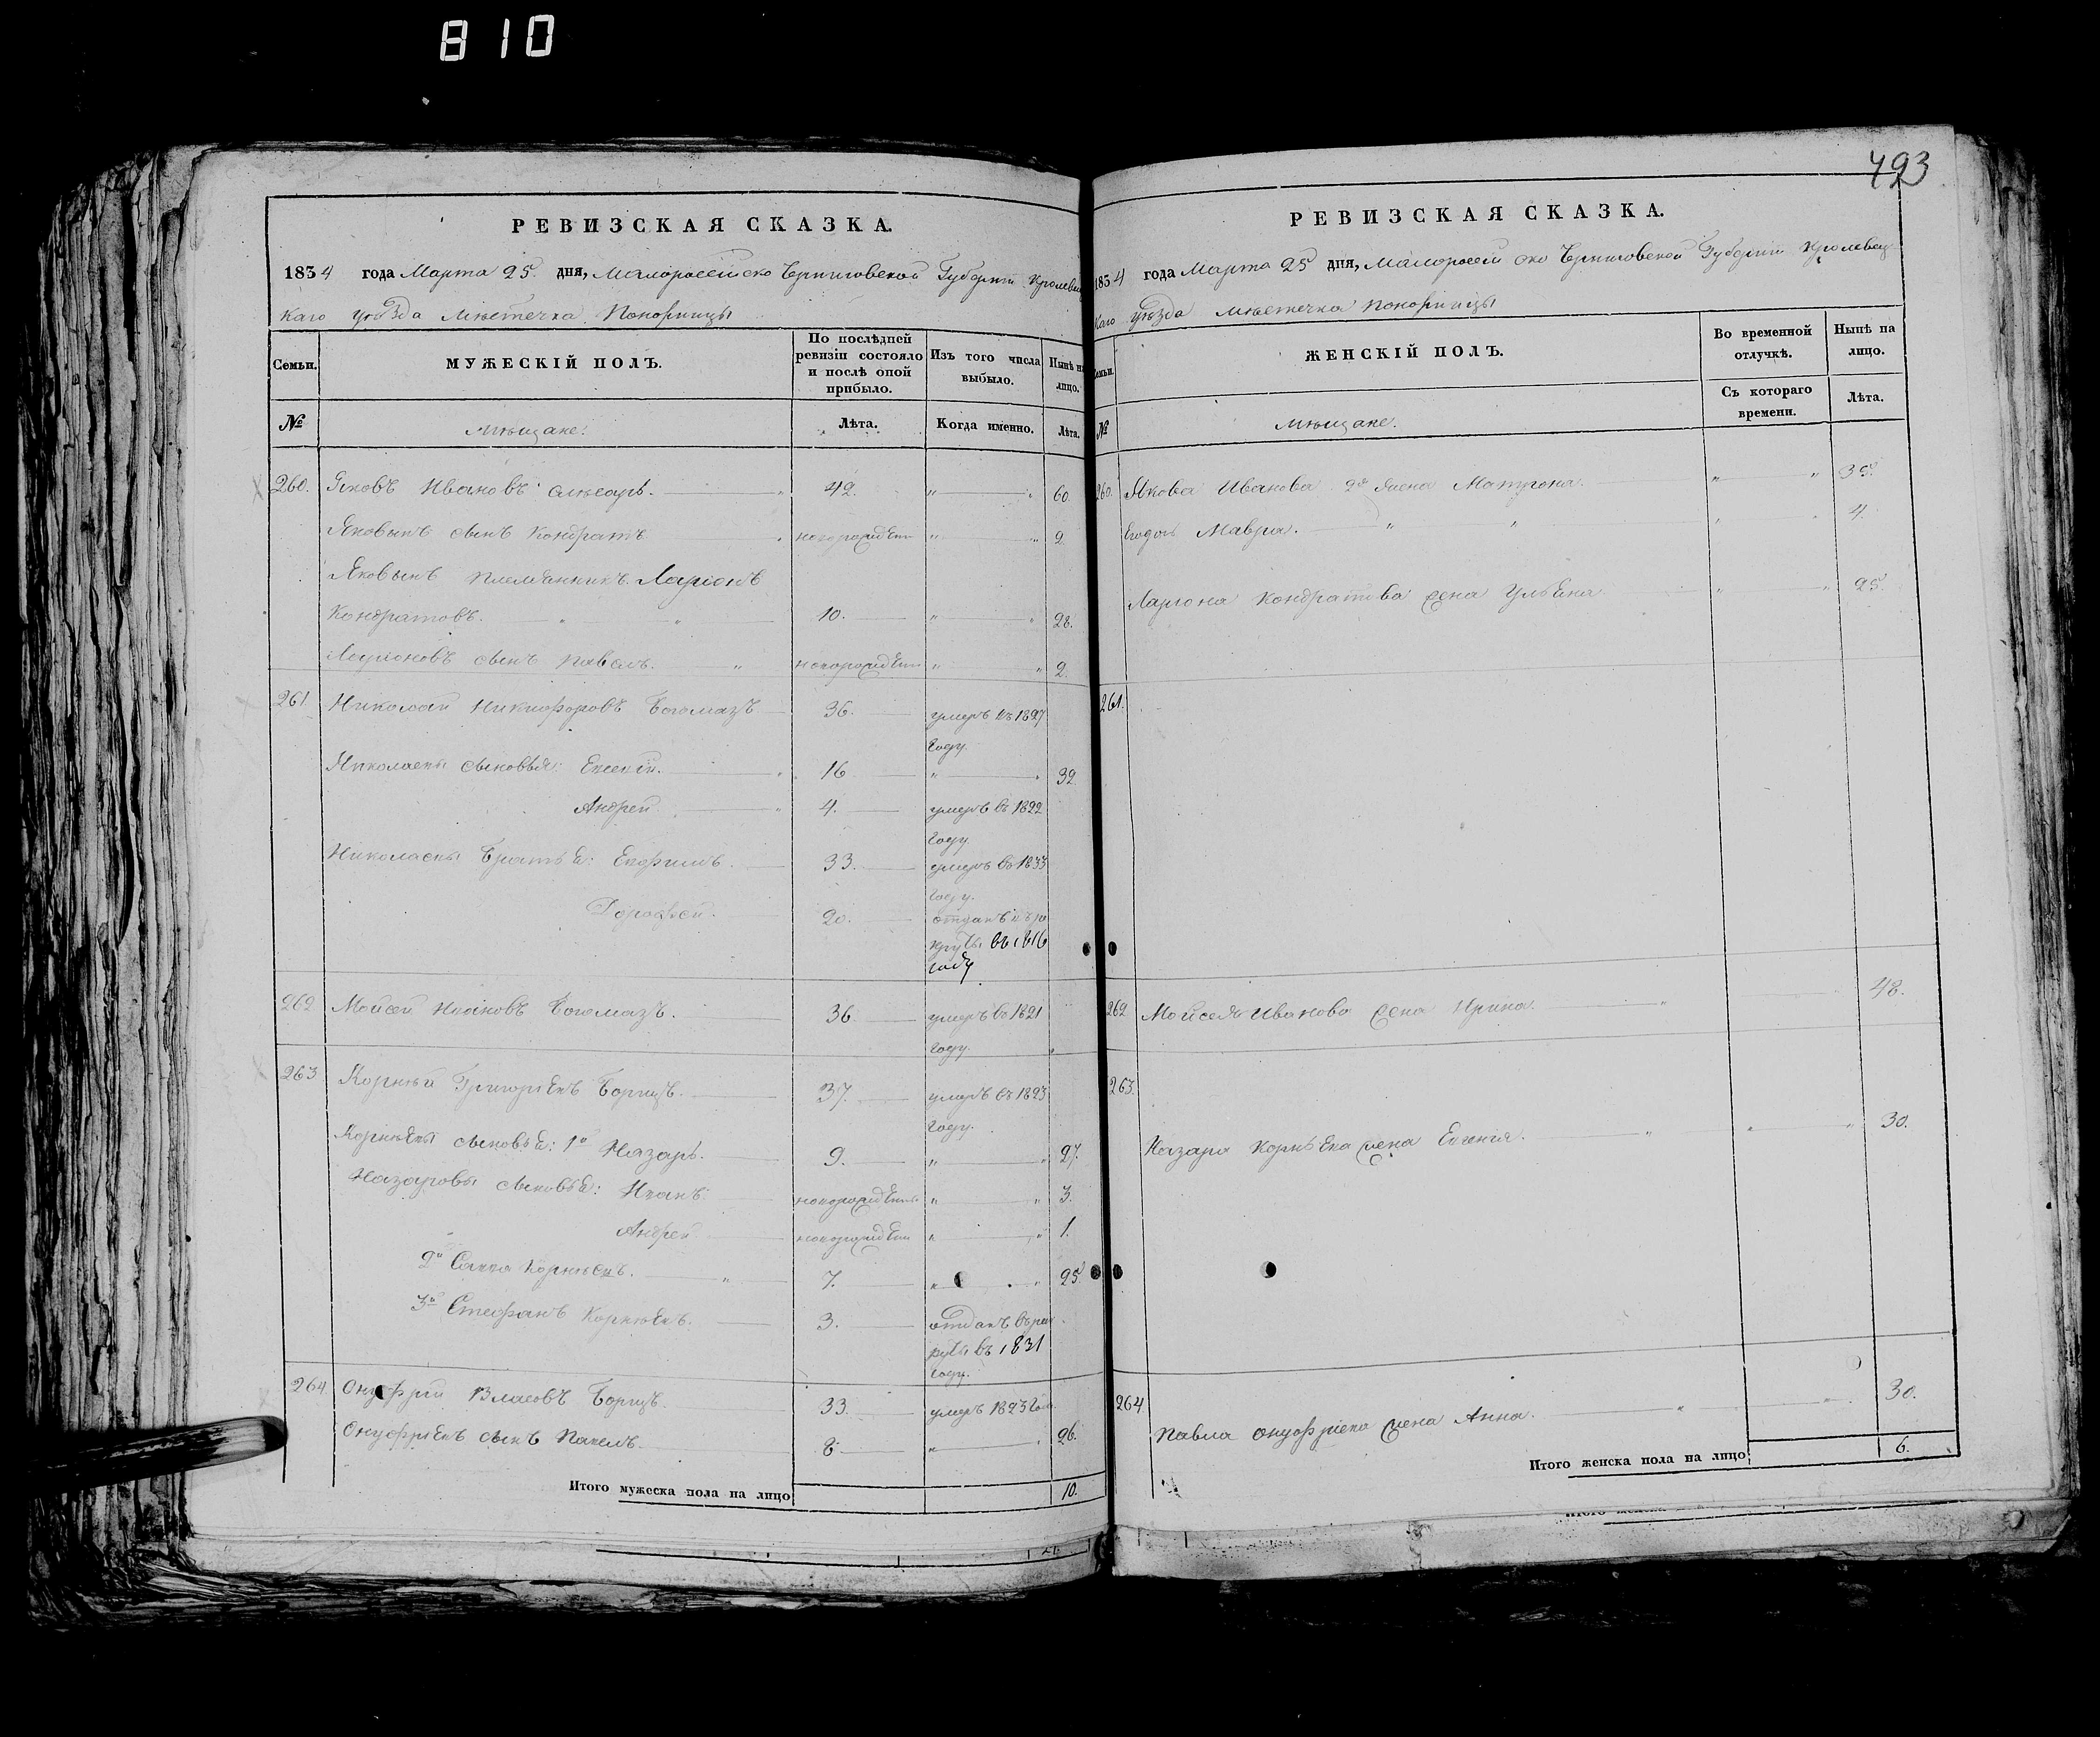 810
493
РЕВИЗСКАЯ СКАЗКА.
1834 года Марта 25 дня, Малороссійско Черниговской Губерніи Кролевец
каго уѣзда мѣстечка Понорницы
Семьи. МУЖЕСКІЙ ПОЛЪ. По послѣдней ревизіи состояло и послѣ оной прибыло. Изъ того числа выбыло. Нынѣ на лицо.
№ Мѣщане. Лѣта. Когда именно. Лѣта.
260. Яковъ Ивановъ слюсарь. 42. " " 60
Яковывъ сынъ Кондратъ новорожден " " 2
Яковывъ племянникъ Ларіонъ
Кондратовъ. " " 10. " " 28.
Ларіоновъ сынъ Павелъ. " новорожден " " 2.
261. Николай Никифоровъ Богомазъ 36. умеръ въ 1827
году.
Николаевы сыновья: Евсевій. " 16 " " 32
Андрей. " 4. умеръ въ 1822
году
Николаевы братья: Ефимъ. 33. умеръ въ 1833
году.
Дорофей. 20. отданъ въ ре
круты въ 1816
году
262 Мойсей Ивановъ Богомазъ. 36 умеръ въ 1821
году.
263 Корнѣй Григоріевъ Борщъ. 37. умеръ въ 1823
году.
Корнѣевы сыновья: 1й Назаръ. 9. " " 27.
Назаровы сыновья: Иванъ. новорожден " " 3.
Андрей новорожден " " 1.
2й Савва Корнѣевъ. " 7. " " 25.
3й Стефанъ Корнѣевъ. 3. отданъ въ рек
руты въ 1831
году.
264 Онуфрій Власовъ Борщъ. 33. умеръ 1823 го
Онуфріевъ сынъ Павелъ. 8 " " 26.
Итого мужеска пола на лицо 10.
РЕВИЗСКАЯ СКАЗКА.
1834 года Марта 25 дня, Малороссій ско Черниговской Губерніи Кролевец
каго уѣзда мѣстечка Понорницы
Семьи. ЖЕНСКІЙ ПОЛЪ. Во временной отлучкѣ. Нынѣ на лицо.
№ Мѣщане. Съ котораго времени. Лѣта.
260. Якова Иванова 2я жена Матрона. " " 35.
Егодочь Мавра. " " " " 4
Ларіона Кондратова жена Ульяна " " 25.
261.
262 Мойсея Иванова жена Ирина. " 48.
263.
Назара Корнѣева жена Евгенія. " " " 30.
264
Павла Онуфріева жена Анна. " " 30.
Итого женска пола на лицо 6.